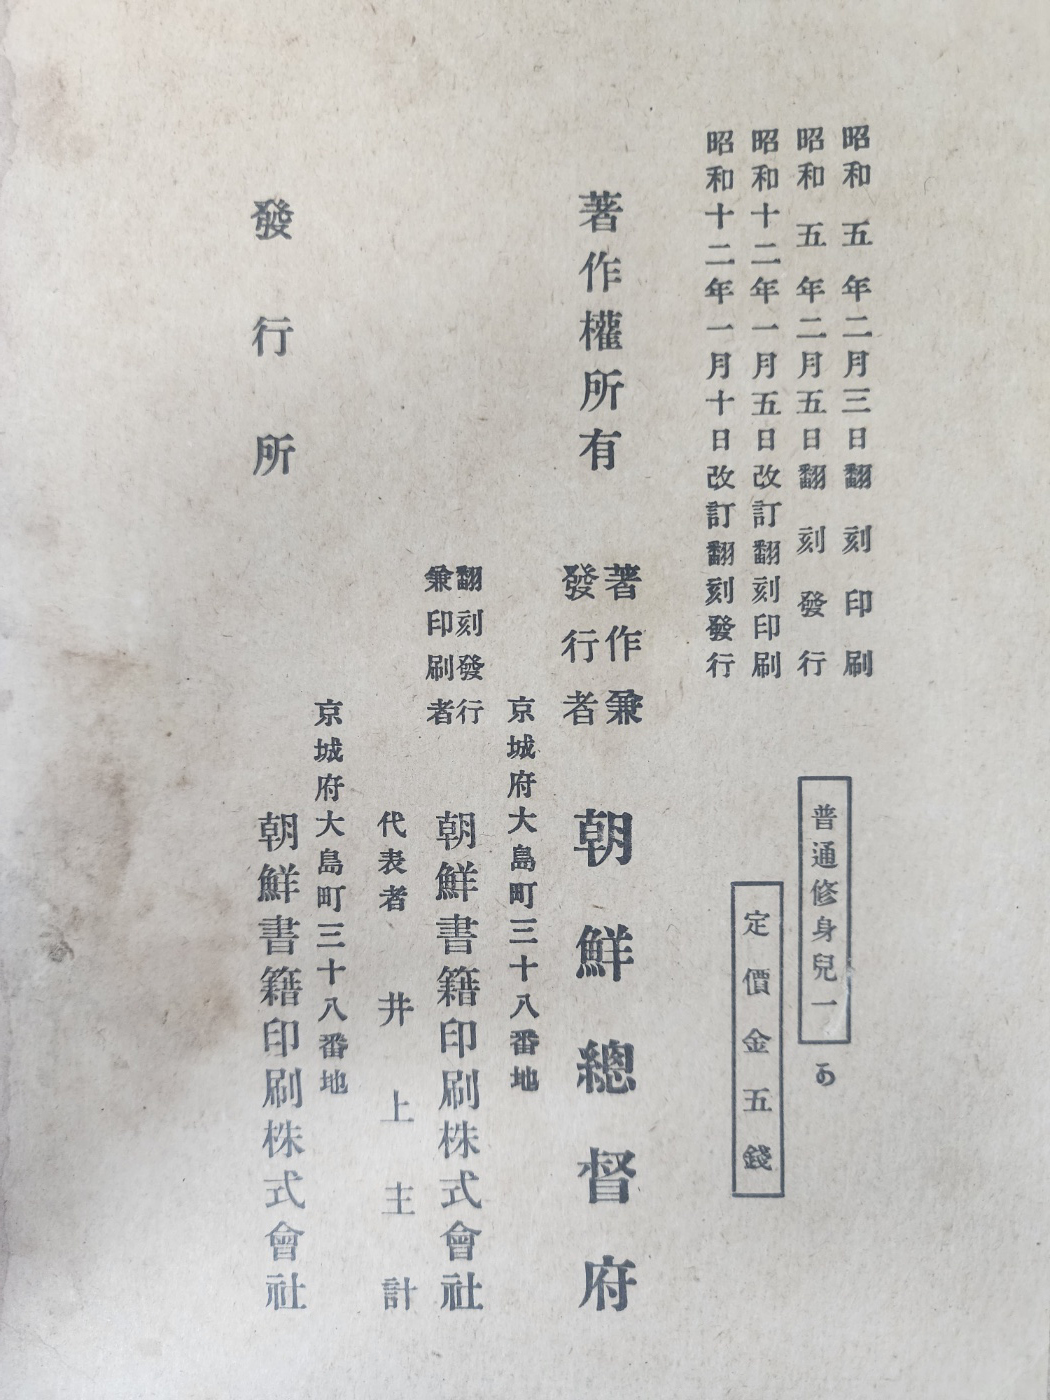 昭和五年二月三日翻刻印刷
昭和五年二月五日翻刻發行
昭和十二年一月五日改訂翻刻印刷
昭和十二年一月十日改訂翻刻發行
普通修身兒一
あ
定價金五錢
著作權所有
著作兼
發行者
朝鮮總督府
京城府大島町三十八番地
翻刻發行
兼印刷者
朝鮮書籍印刷株式會社
代表者 井上主計
京城府大島町三十八番地
發行所
朝鮮書籍印刷株式會社